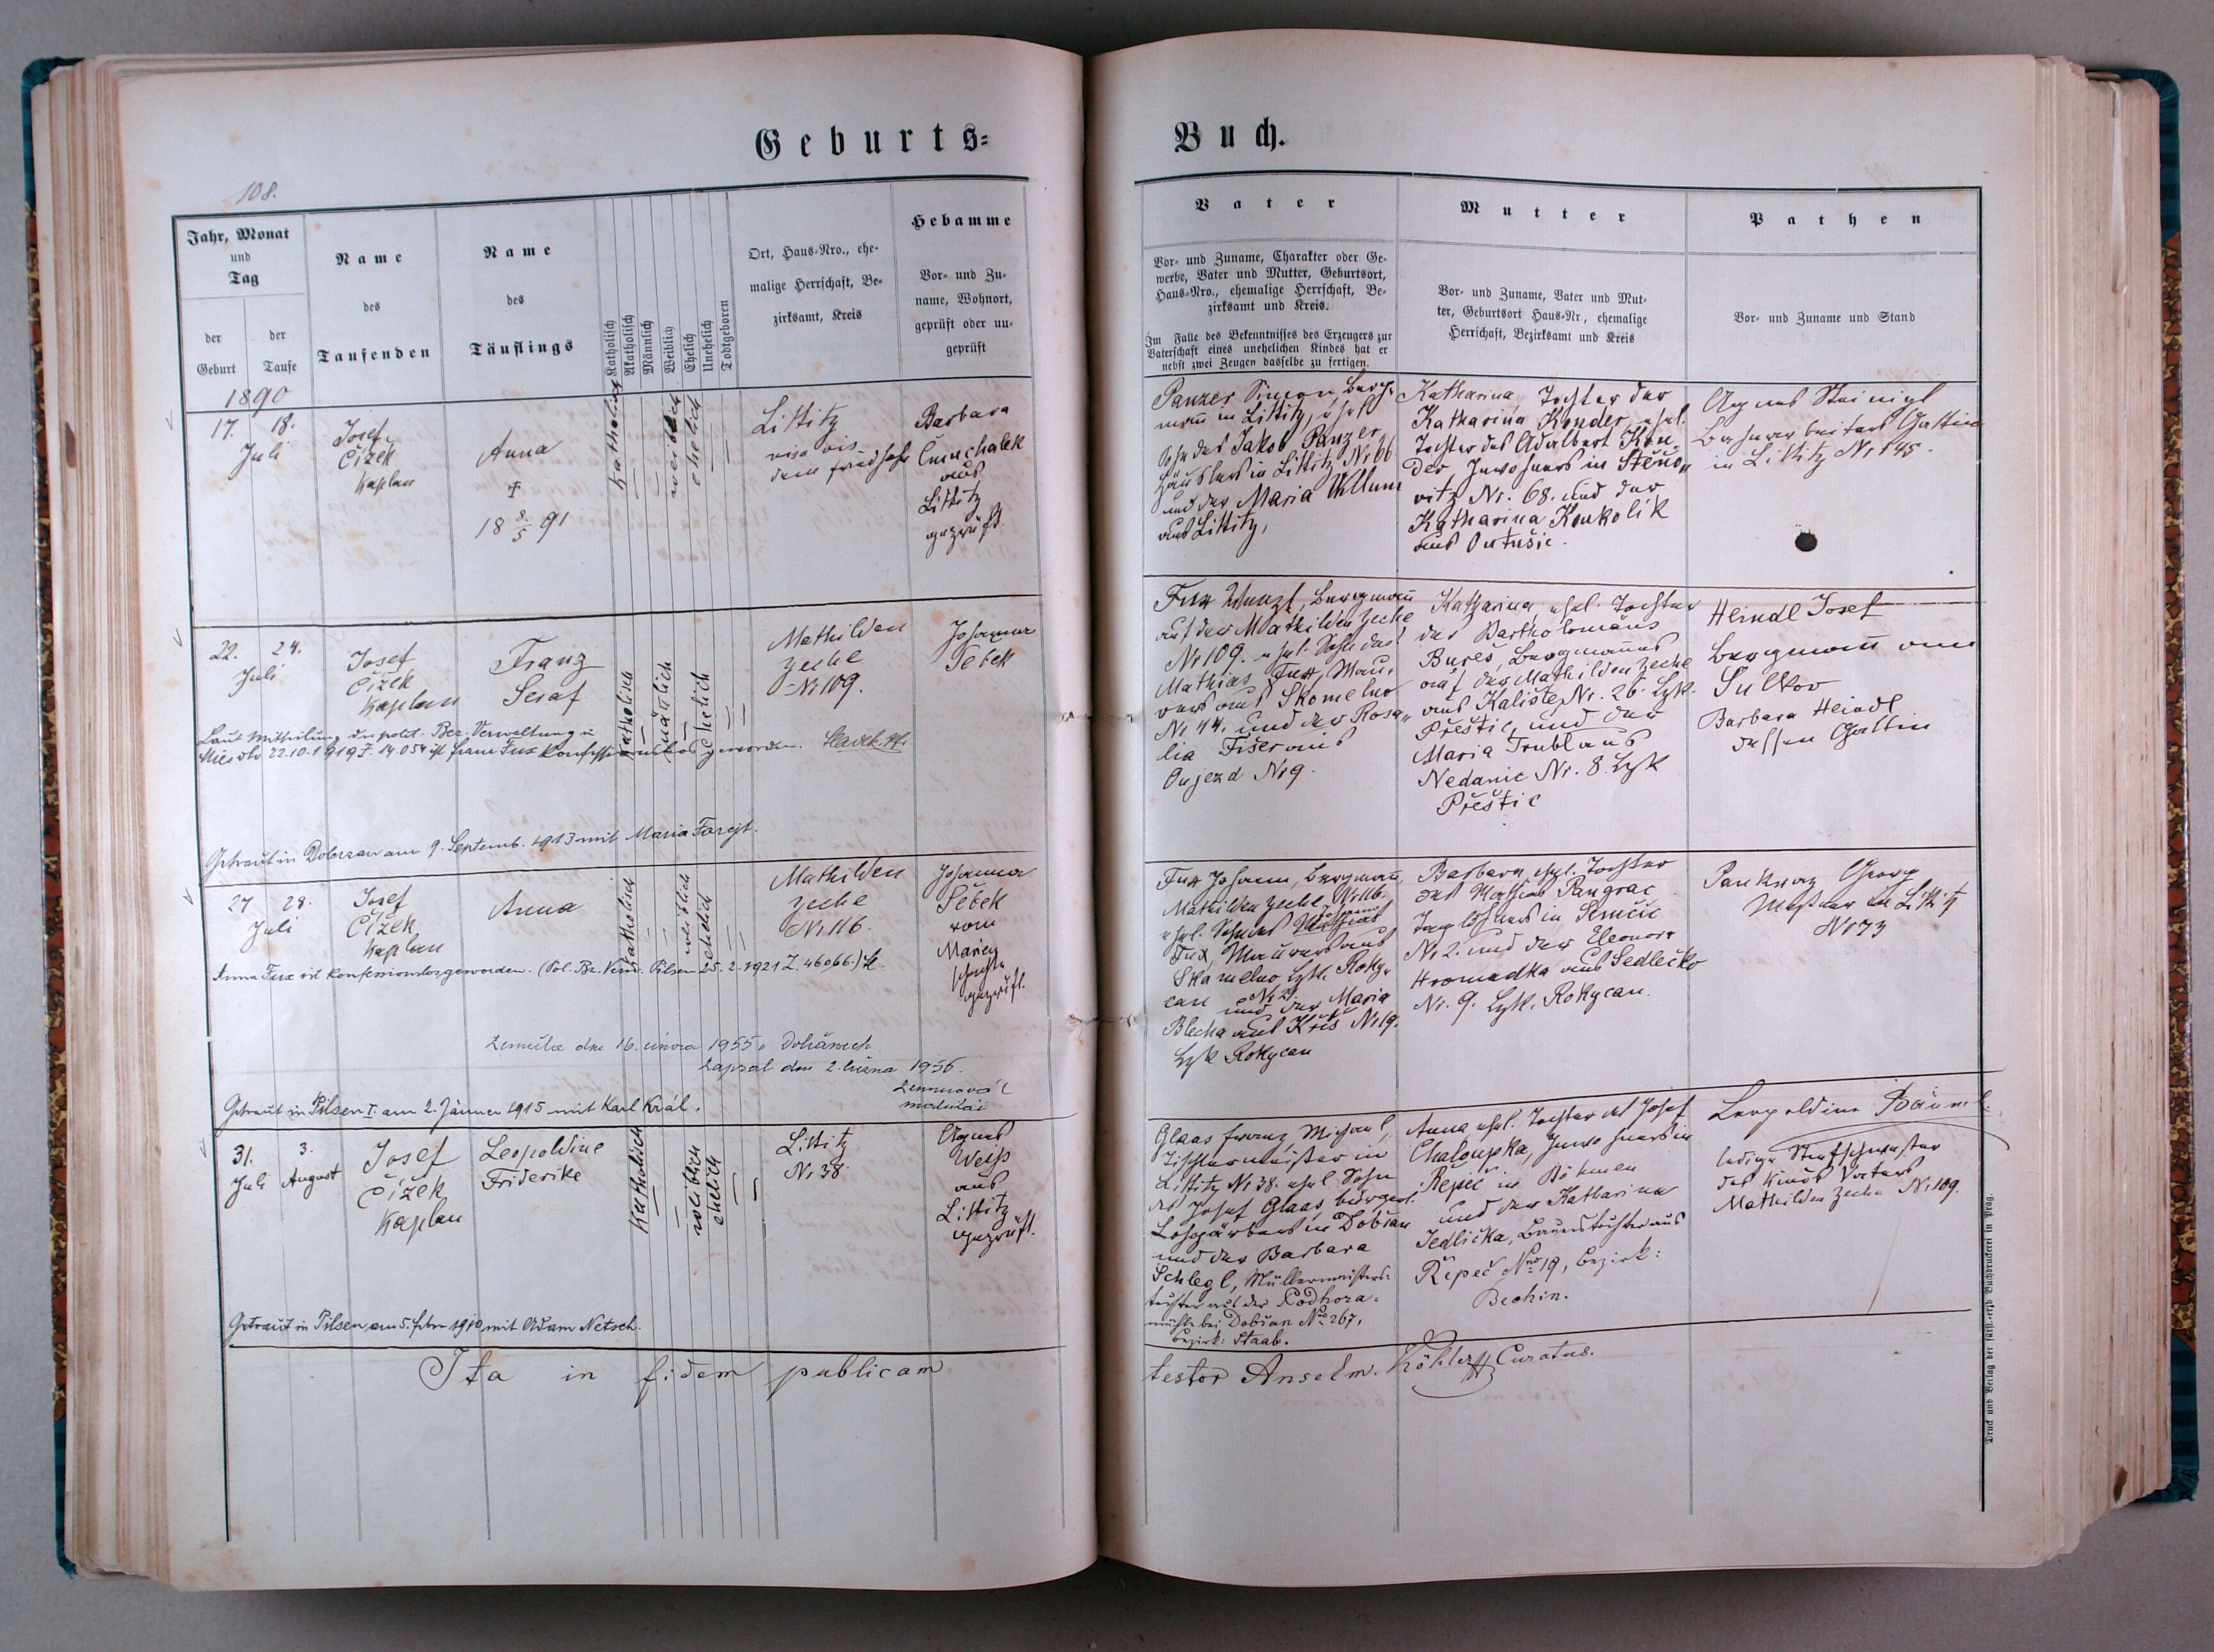 Geburts=
Buch.
108.
Jahr, Monat
und
Tag
der
Geburt
der
Taufe
Name
des
Taufenden
Name
des
Täuflings
Katholisch
Akatholisch
Männlich
Weiblich
Ehelich
Unehelich
Todtgeboren
Ort, Haus-Nro., ehe-
malige Herrschaft, Be-
zirksamt, Kreis
Hebamme
Vor- und Zu-
name, Wohnort,
geprüft oder un-
geprüft
Vater
Vor- und Zuname, Charakter oder Ge-
werbe, Vater und Mutter, Geburtsort,
Haus-Nro., ehemalige Herrschaft, Be-
zirksamt und Kreis.
Im Falle des Bekenntnisses des Erzeugers zur
Vaterschaft eines unehelichen Kindes hat er
nebst zwei Zeugen dasselbe zu fertigen.
Mutter
Vor- und Zuname, Vater und Mut-
ter, Geburtsort Haus-Nr, ehemalige
Herrschaft, Bezirksamt und Kreis
Pathen
Vor- und Zuname und Stand
1890
17. 18.
Juli
Josef
Čížek
Kaplan
Anna
†
18 8/5 91
katholisch
weiblich
ehelich
Littitz
vis a vis
dem Friedhofe
Barbara
aus
Littitz
geprüft.
Panzer Simon, Berg-
mann in Littitz, ehel.
Sohn des Jakob Panzer
Häuslers in Littitz Nr 66
und der Maria
aus Littitz,
Katharina Tochter der
Katharina Konder, ehel.
Tochter des Adalbert Kon-
der Inwohners in Štěno-
witz Nr. 68. und der
Katharina Koukolik
aus
Agnes Steinigl
Bahnarbeiters Gattin
in Littitz Nr 195.
22. 24.
Juli
Josef
Čížek
Kaplan
Franz
Seraf
katholisch
mänlich
ehelich
Mathilden
zeche
Nr 109.
Johanna
Šebek
Laut Mittheilung der polit. Bez. Verwaltung in
Mies dto 22.10.1919 Z. 14.054 ist Franz Fux konfessionslos geworden.
Getraut in Dobrzan am 9. Septemb. 1913 mit Maria Forejt.
Fux Wenzl, Bergmann
auf der Mathilden Zeche
Nr 109. ehel. Sohn des
Mathias Fux, Mau-
rers aus Skomelno
Nr 44. und der Rosa-
lia Fišer aus
Oujezd Nr 9.
Katharina ehel. Tochter
des Bartholomäus
Bureš, Bergmannes
auf der Mathilden Zeche
aus Kaliště Nr. 26. Bzk.
Přeštic, und der
Maria Trubl aus
Nedanic Nr. 8. Bzk
Přeštic
Heindl Josef
Bergmann von
Sulkov
Barbara Heindl
dessen Gattin
27 28.
Juli
Josef
Čížek
Kaplan
Anna
katholisch
weiblich
ehelich
Mathilden
zeche
Nr 116.
Johanna
Šebek
vom
geprüft.
Anna Fux ist konfessionslos geworden. (Pol. Bz. Verw. Pilsen 25.2.1921 Z. 46066.)
Zemřela dne 16. února 1955 v Dobřanech
Zapsal dne 2. března 1956.
Getraut in Pilsen I. am 2. Jänner 1915 mit Karl Král.
Fux Johann, Bergmann
Mathilden zeche Nr 116.
ehel. Sohn des Johann
Fux, Maurers aus
Skomelno Bzk. Roky-
can Nr 21 und der Maria
Blecha aus Kříš Nr 19.
Bzk Rokycan
Barbara ehel. Tochter
des Mathias Pangrac
Taglöhners in
Nr 2. und der Eleonora
Hromadka aus Sedlečko
Nr. 9. Bzk. Rokycan.
Pankraz Georg
Messner in Littitz
Nr 73
31. 3.
Juli August
Josef
Čížek
Kaplan
Leopoldine
Friderike
Katholisch
weiblich
ehelich
Littitz
Nr 38.
Agnes
Weiss
aus
Littitz
geprüft.
Getraut in Pilsen am 5. Febr. 1910 mit Adam Netsch.
Glaas Franz Michael,
Tischlermeister in
Littitz Nr 38. ehel. Sohn
des Josef Glaas, bürgerl.
Lohgärbers in Dobřan
und der Barbara
Schlegl, Müllermeisters-
tochter aus der Podhora-
mühle bei Dobřan No 267,
Bezirk: Staab.
Anna ehel. Tochter des Josef
Chaloupka, Inwohners in
Řepeč in Böhmen
und der Katharina
Jedlička, Bauerstochter aus
Řepeč No 19, Bezirk:
Bechin.
Leopoldine Bäuml:
ledige Stiefschwester
des Kindes Vaters
Mathilden Zeche Nr 109.
Ita in fidem publicam
testor Anselm. Köhler Curatus.
Druck und Verlag der fürst.-erzb. Buchdruckerei in Prag.